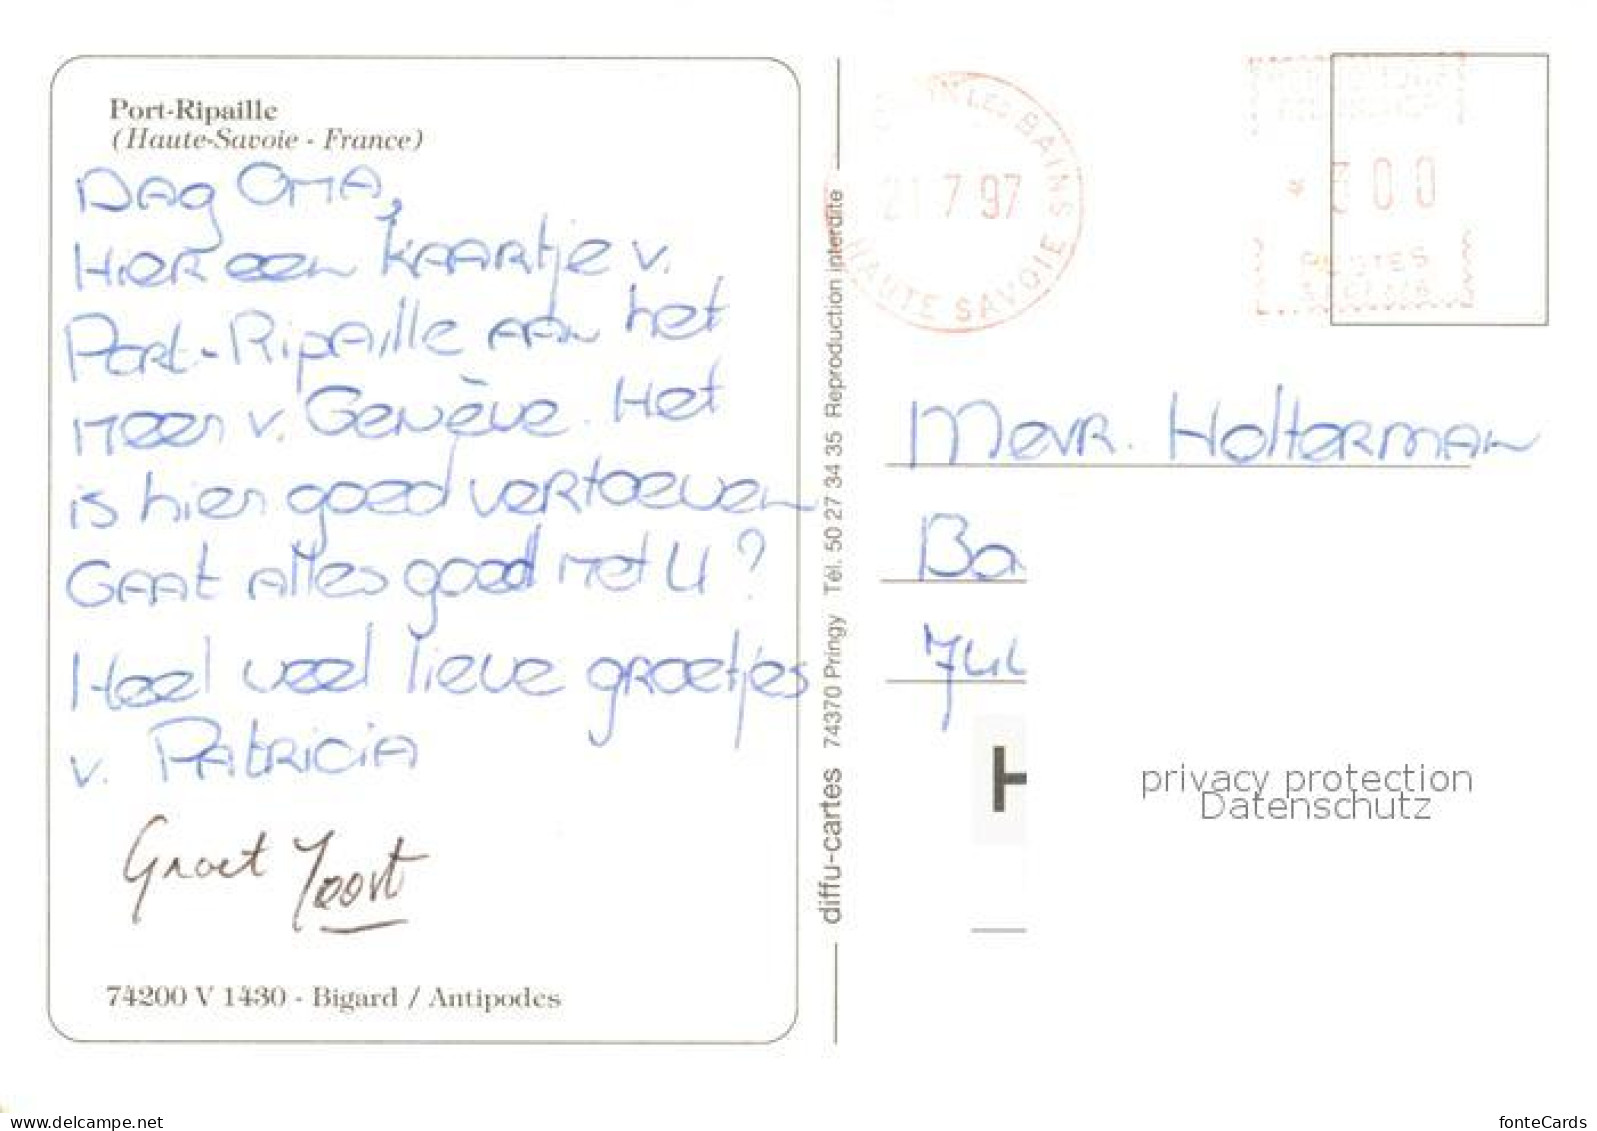 Port-Ripaille
(Haute-Savoie - France)
Dag Oma,
Hier een kaartje v.
Port-Ripaille aan het
meer v. Genève. Het
is hier goed vertoeven
Gaat alles goed met U?
Heel veel lieve groetjes
v. Patricia
Groet Joort
74200 V 1430 - Bigard / Antipodes
diffu-cartes 74370 Pringy Tél. 50 27 34 35 Reproduction interdite
LES BAINS
21 7 97
HAUTE SAVOIE
* 300
POSTES
Mevr. Holterman
Ba
H
privacy protection
Datenschutz
www.delcampe.net
fonteCards